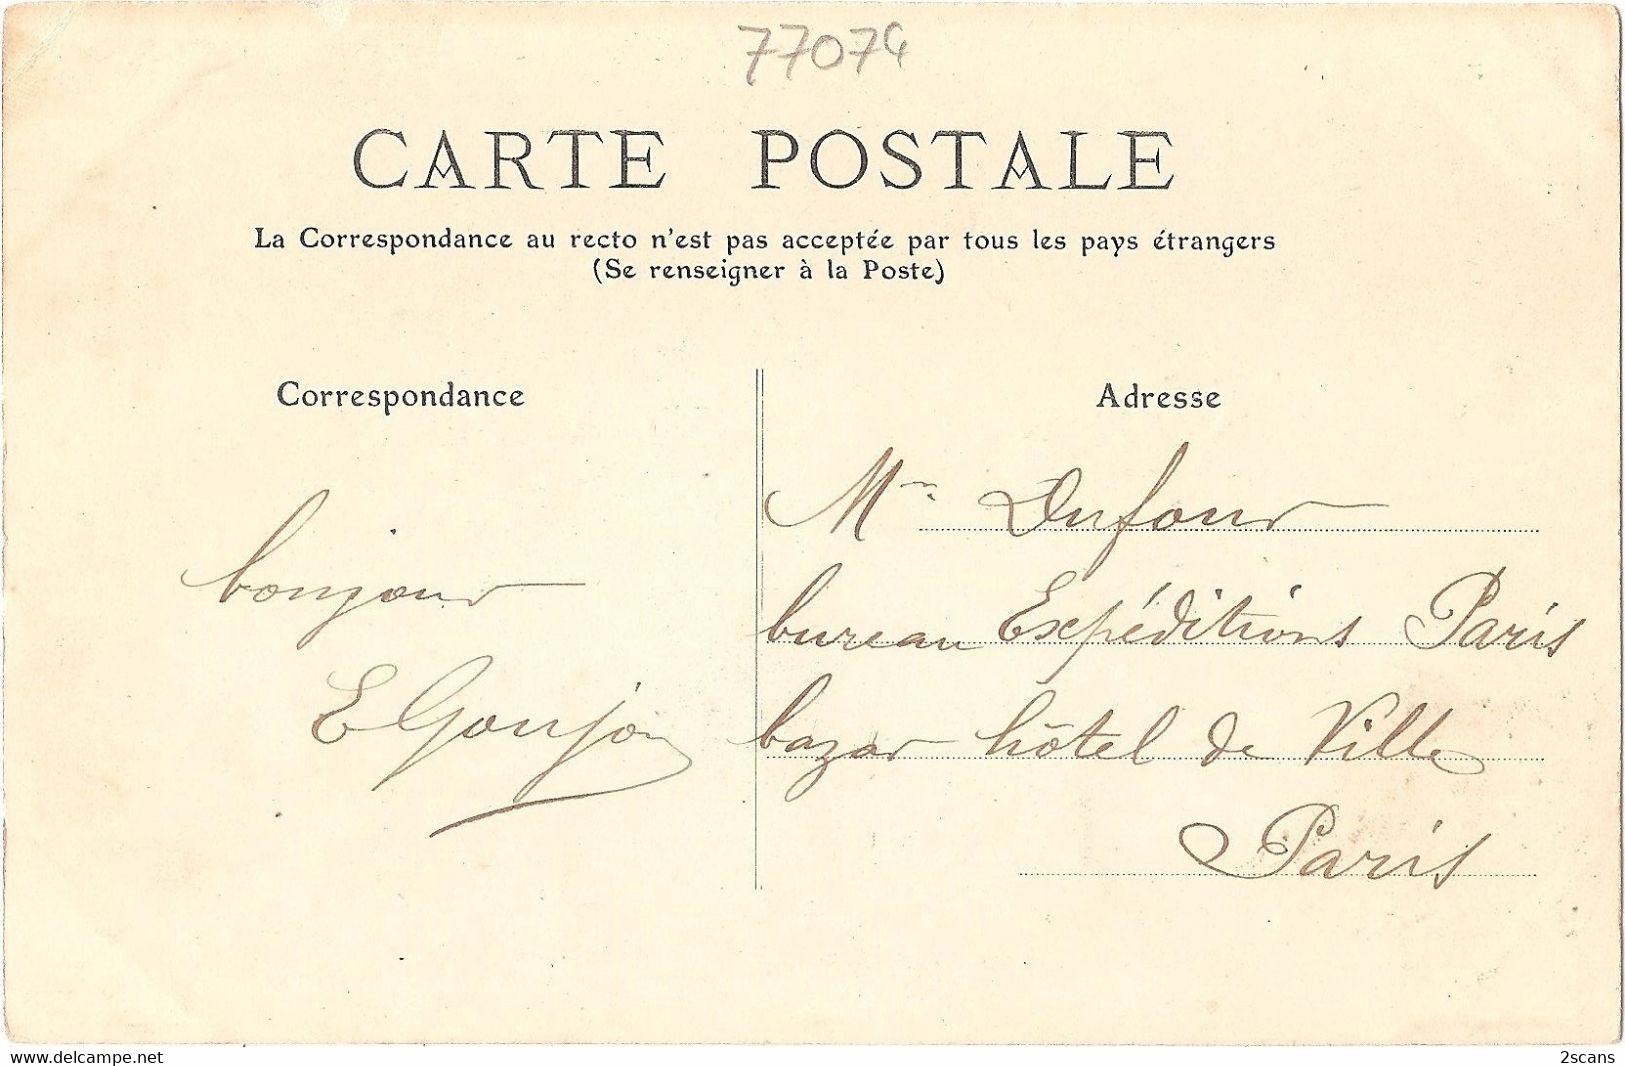 77074
CARTE POSTALE
La Correspondance au recto n'est pas acceptée par tous les pays étrangers
(Se renseigner à la Poste)
Correspondance
Adresse
bonjour
E Goujon
Mr Dufour
bureau Expéditions Paris
bazar hôtel de Ville
Paris
www.delcampe.net
2scans